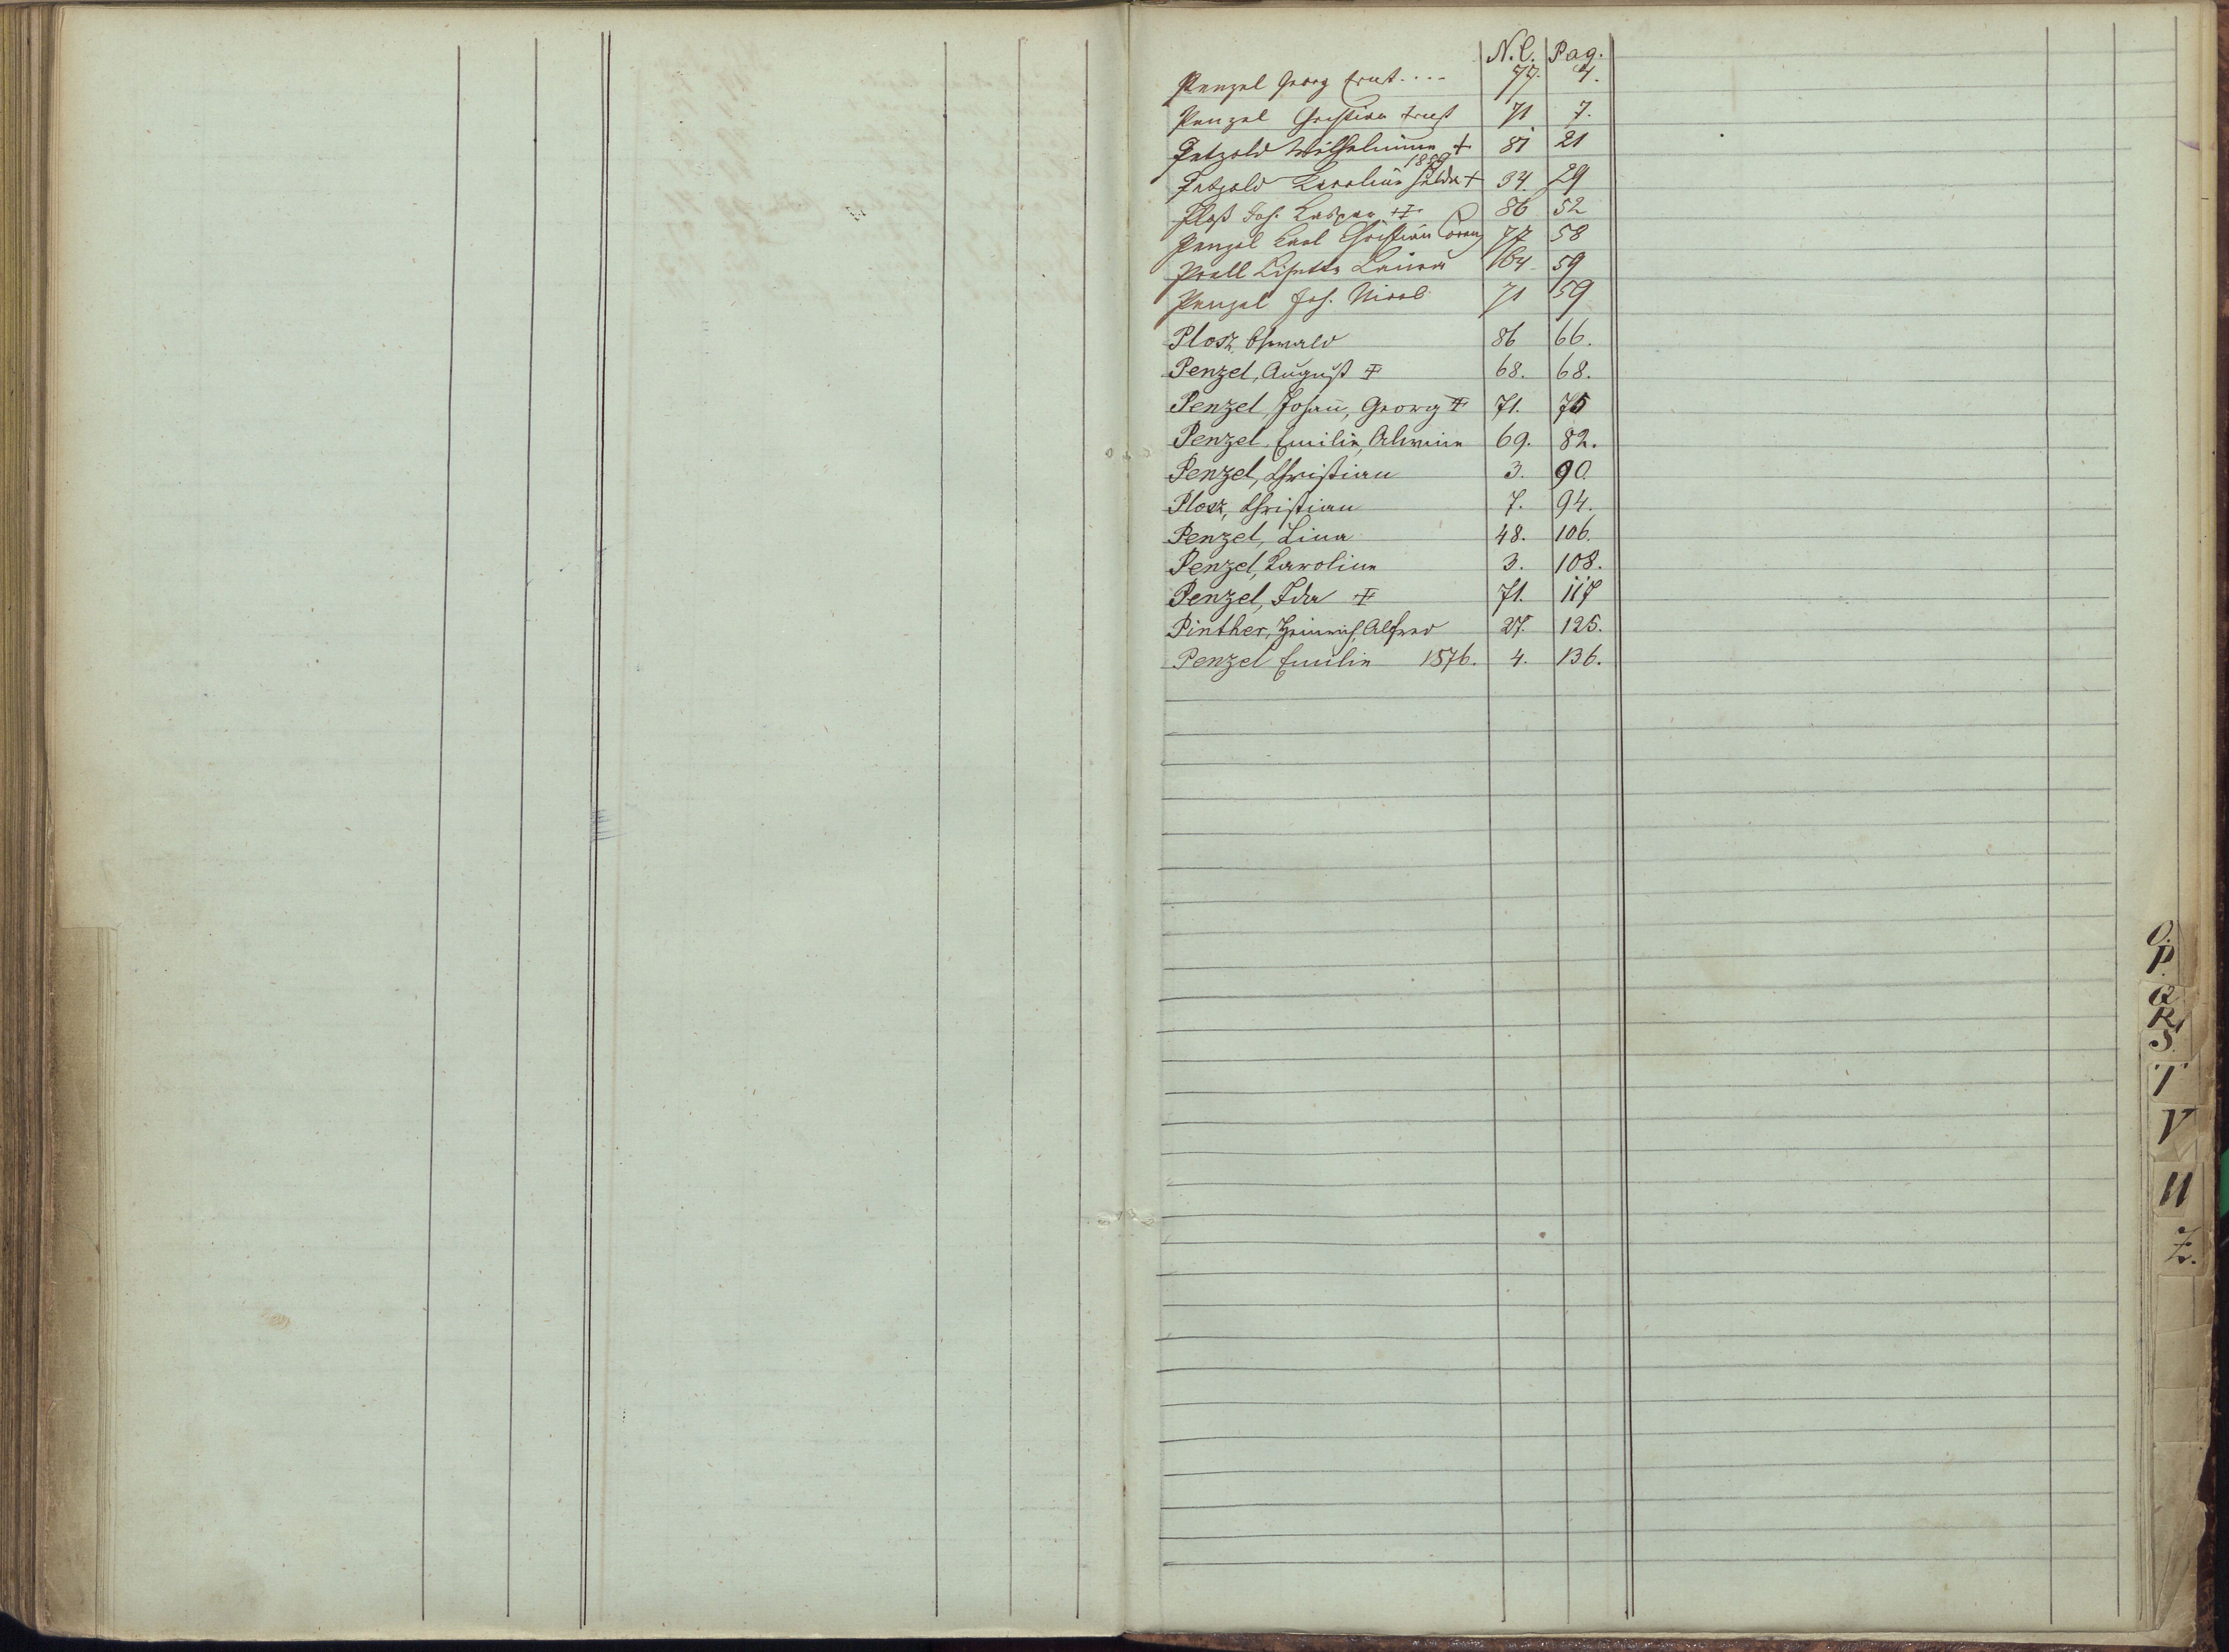 N.C. Pag.
Penzel Georg Ernst.... 77. 4.
Penzel Christian Ernst 71 7.
Petzold Wilhelmine + 81 21
1889
Petzold Karoline Hulda + 34. 29
Ploß Joh. Kaspar ‡ 86 52
Penzel Karl Christian 77 58
Prell Lisette Laura 164 59
Penzel Joh. Nicol 71 59
Plosz, Oswald 86 66.
Penzel, August ‡ 68. 68.
Penzel, Johañ, Georg ‡ 71. 75
Penzel, Emilie, Alwine 69. 82.
Penzel, Christian 3. 90.
Plosz, Christian 7. 94.
Penzel, Lina 48. 106.
Penzel, Karoline 3. 108.
Penzel, Ida ‡ 71. 117
Pinther, Heinrich, Alfred 27. 125.
Penzel Emilie 1876. 4. 136.
O.
P.
Q
R
S.
T
V
U
Z.